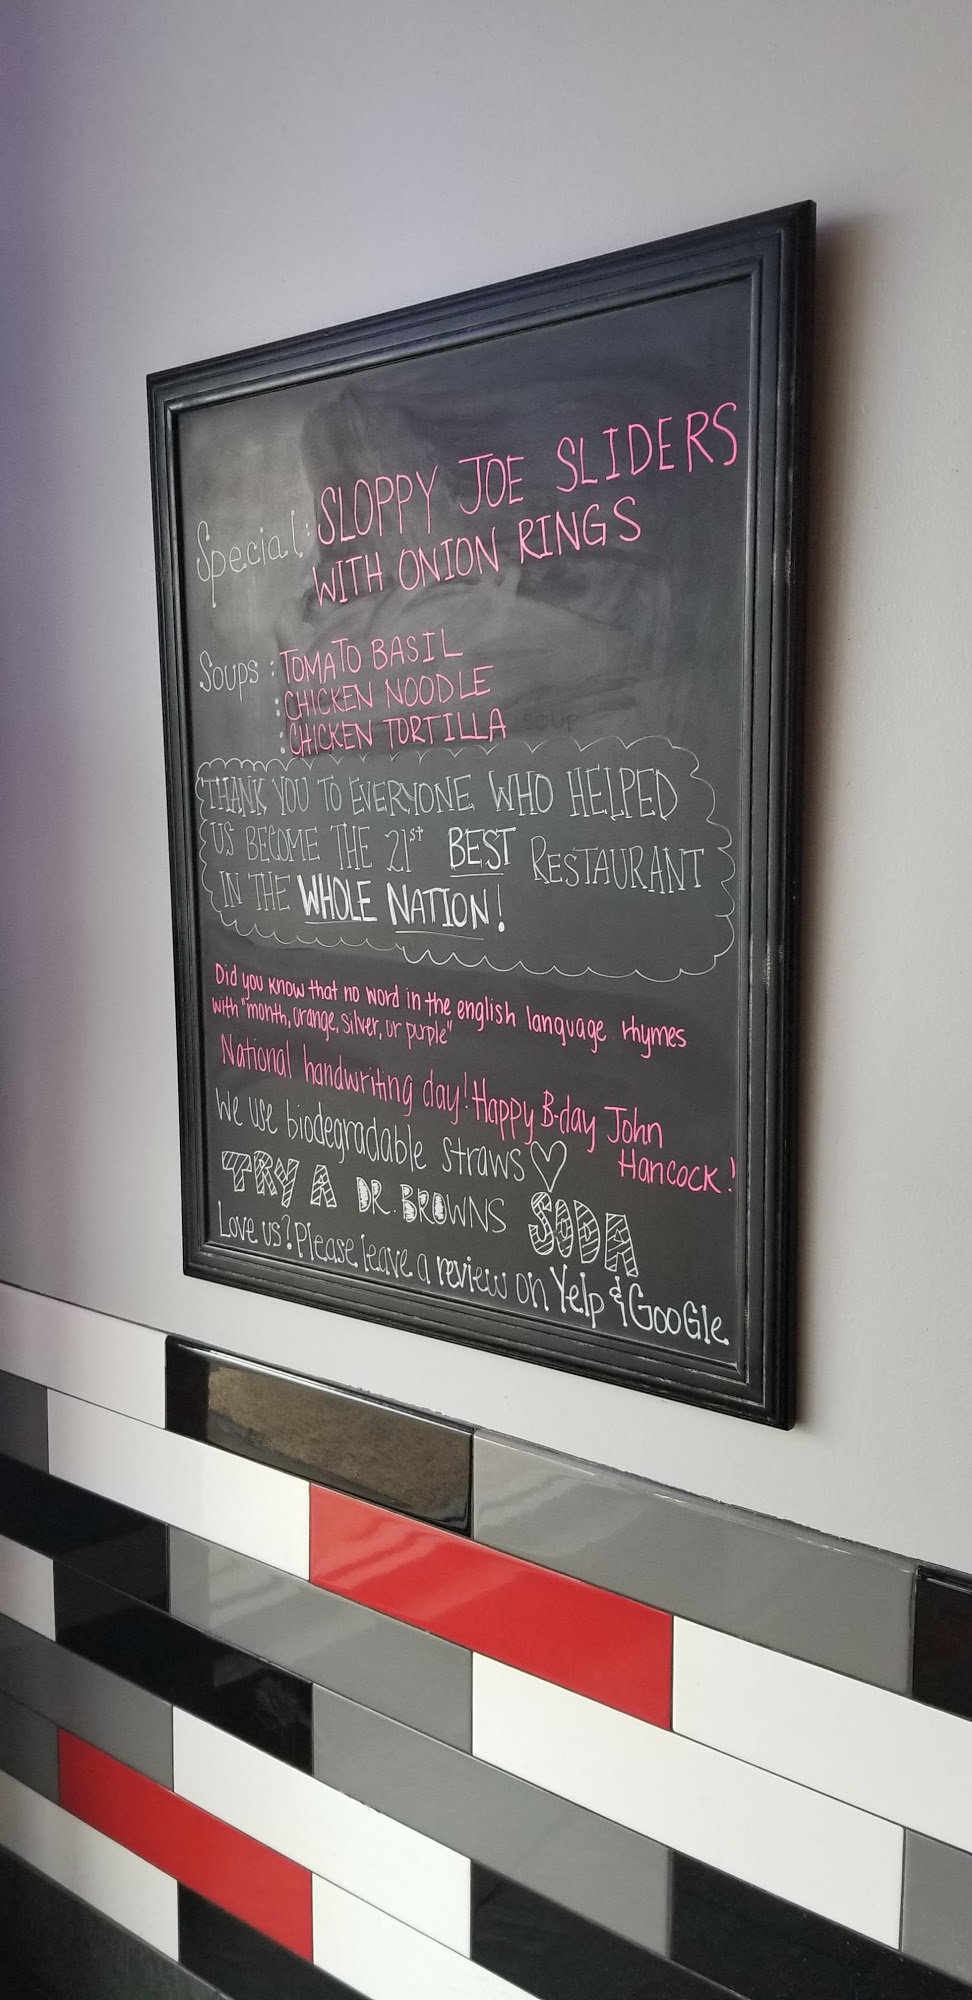 Special: SLOPPY JOE SLIDERS
WITH ONION RINGS
Soups : TOMATO BASIL
: CHICKEN NOODLE
: CHICKEN TORTILLA SOUP
THANK YOU TO EVERYONE WHO HELPED
US BECOME THE 21st BEST RESTAURANT
IN THE WHOLE NATION!
Did you know that no word in the english language rhymes
with "month, orange, silver, or purple"
National handwriting day! Happy B-day John
Hancock!
We use biodegradable straws ♡
TRY A DR. BROWNS SODA
Love us? Please leave a review on Yelp & GooGle